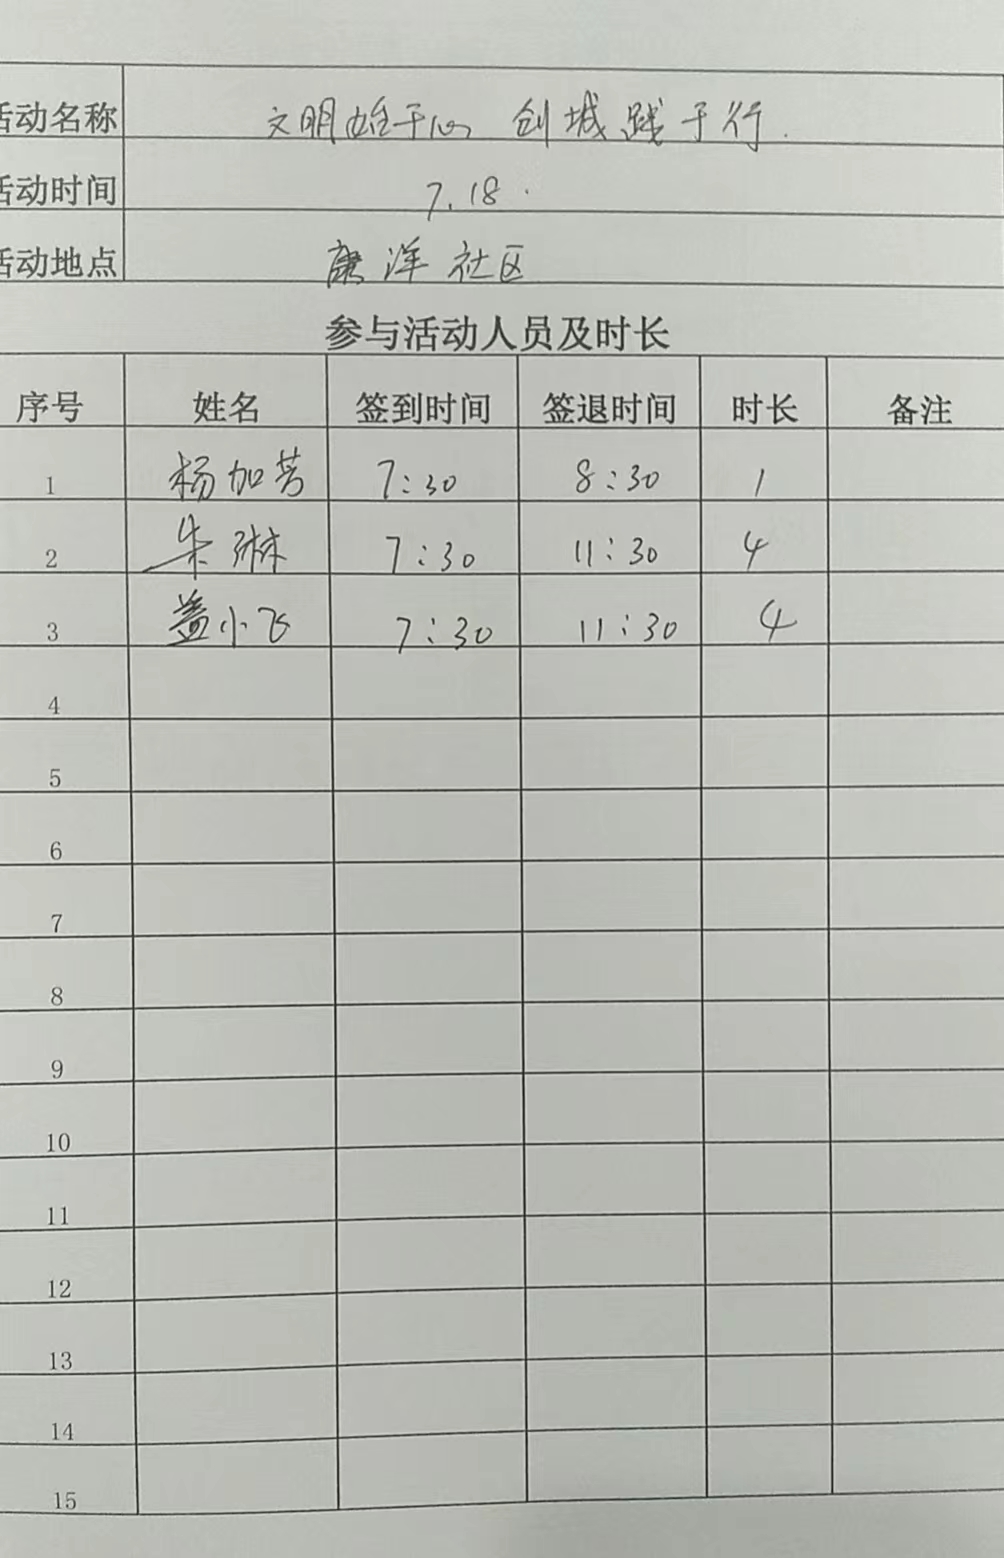 活动名称 文明始于心 创城践于行.
活动时间 7.18.
活动地点 康洋社区
参与活动人员及时长
序号 姓名 签到时间 签退时间 时长 备注
1 杨加芳 7:30 8:30 1
2 朱琳 7:30 11:30 4
3 盖小飞 7:30 11:30 4
4
5
6
7
8
9
10
11
12
13
14
15